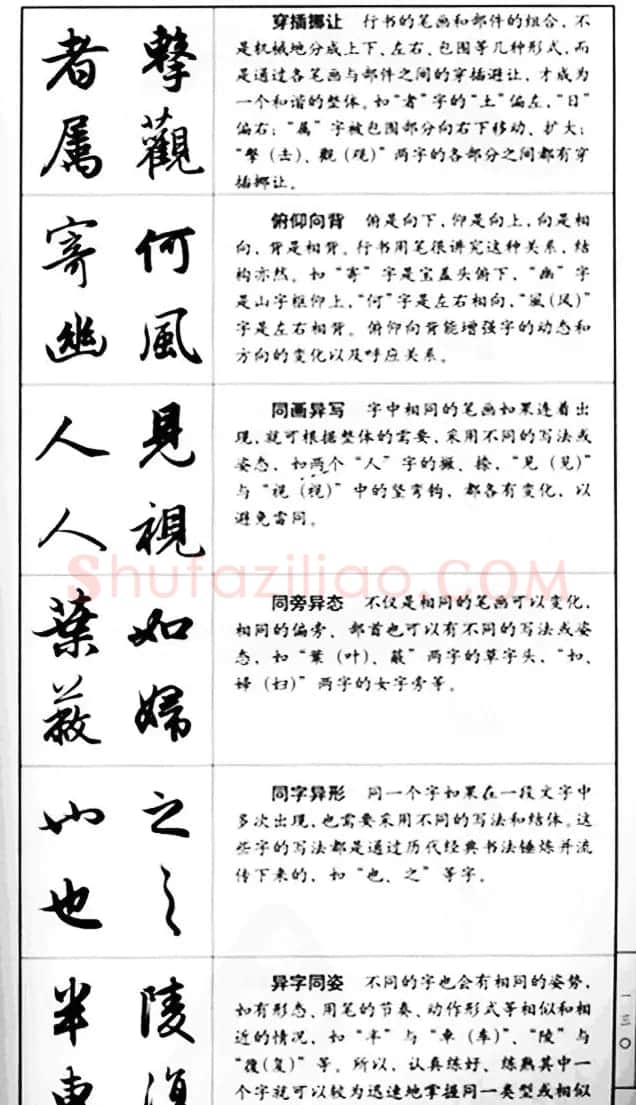 者 擊
属 觀
穿插挪让 行书的笔画和部件的组合，不
是机械地分成上下、左右、包围等几种形式，而
是通过各笔画与部件之间的穿插避让，才成为
一个和谐的整体。如“者”字的“土”偏左，“日”
偏右；“属”字被包围部分向右下移动、扩大；
“擊（击）、觀（观）”两字的各部分之间都有穿
插挪让。
寄 何
幽 風
俯仰向背 俯是向下，仰是向上，向是相
向，背是相背。行书用笔很讲究这种关系，结
构亦然。如“寄”字是宝盖头俯下，“幽”字
是山字框仰上，“何”字是左右相向，“風（风）”
字是左右相背。俯仰向背能增强字的动态和
方向的变化以及呼应关系。
人 見
人 視
同画异写 字中相同的笔画如果连着出
现，就可根据整体的需要，采用不同的写法或
姿态，如两个“人”字的撇、捺，“見（见）”
与“視（视）”中的竖弯钩，都各有变化，以
避免雷同。
Shufaziliao.COM
葉 如
蔽 婦
同旁异态 不仅是相同的笔画可以变化，
相同的偏旁、部首也可以有不同的写法或姿
态，如“葉（叶）、蔽”两字的草字头，“如、
婦（妇）”两字的女字旁等。
也 之
也 之
同字异形 同一个字如果在一段文字中
多次出现，也需要采用不同的写法和结体。这
些字的写法都是通过历代经典书法锤炼并流
传下来的，如“也、之”等字。
半 陵
車 復
异字同姿 不同的字也会有相同的姿势，
如有形态、用笔的节奏、动作形式等相似和相
近的情况，如“半”与“車（车）”、“陵”与
“復（复）”等。所以，认真练好、练熟其中一
个字就可以较为迅速地掌握同一类型或相似
一三〇